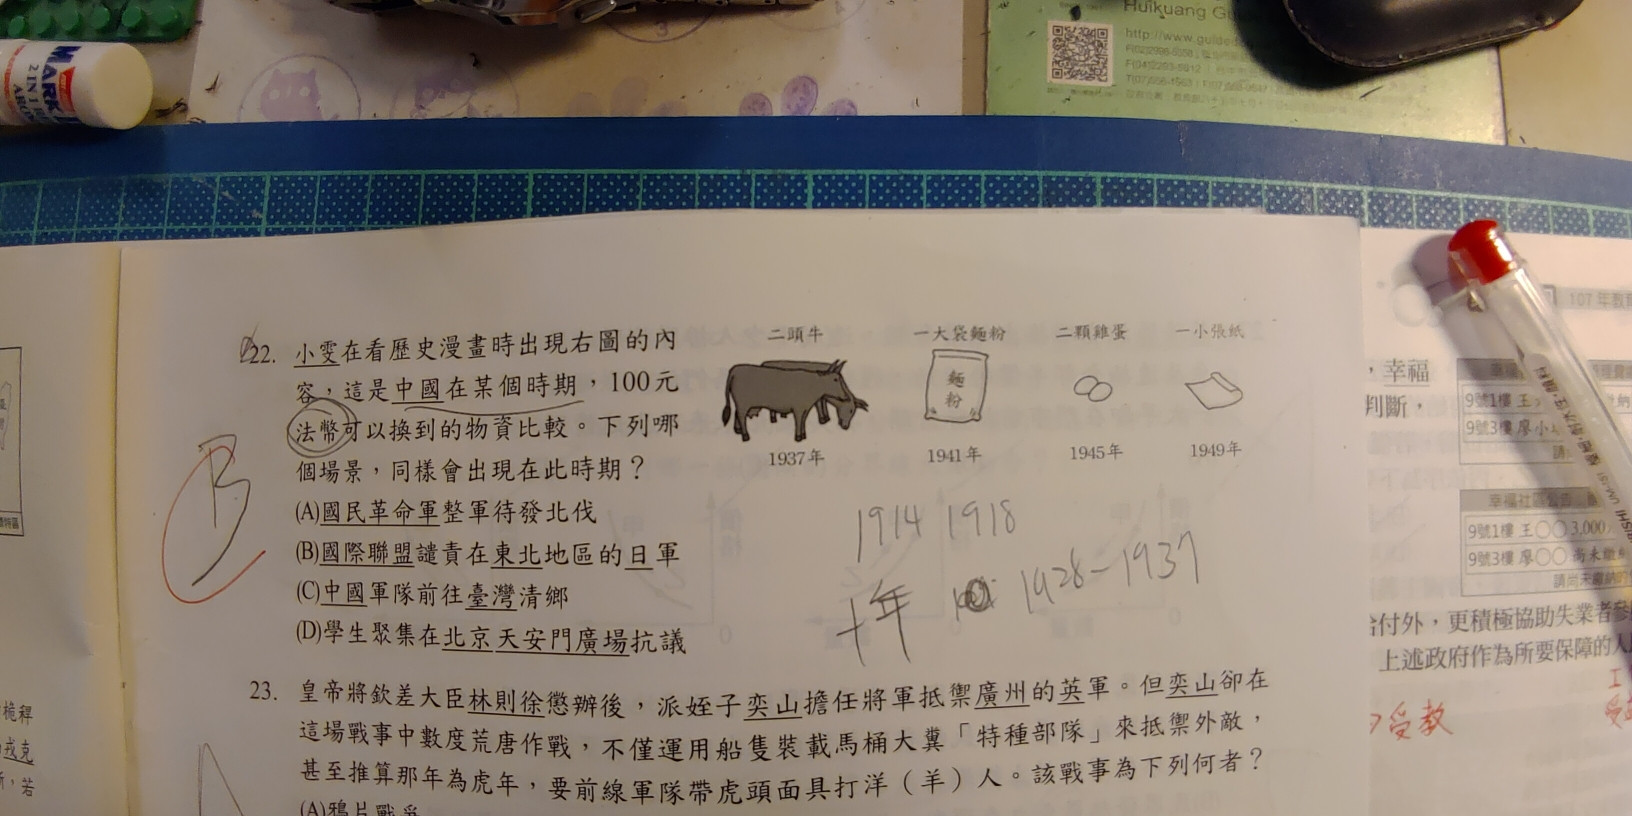 Huikuang Gu
http://www.guide
MAR
2 IN 1
22. 小雯在看歷史漫畫時出現右圖的內
容，這是中國在某個時期，100元
法幣可以換到的物資比較。下列哪
個場景，同樣會出現在此時期？
(A)國民革命軍整軍待發北伐
(B)國際聯盟譴責在東北地區的日軍
(C)中國軍隊前往臺灣清鄉
(D)學生聚集在北京天安門廣場抗議
二頭牛 一大袋麵粉 二顆雞蛋 一小張紙
麵粉
1937年 1941年 1945年 1949年
B
1914 1918
十年 1928-1937
23. 皇帝將欽差大臣林則徐懲辦後，派姪子奕山擔任將軍抵禦廣州的英軍。但奕山卻在
這場戰事中數度荒唐作戰，不僅運用船隻裝載馬桶大糞「特種部隊」來抵禦外敵，
甚至推算那年為虎年，要前線軍隊帶虎頭面具打洋（羊）人。該戰事為下列何者？
(A)鴉片戰爭
107年教
，幸福
判斷，
9號1樓 王
9號3樓 廖小
幸福社區公告
9號1樓 王○○ 3,000
9號3樓 廖○○ 尚未繳
給付外，更積極協助失業者參
上述政府作為所要保障的人
受教